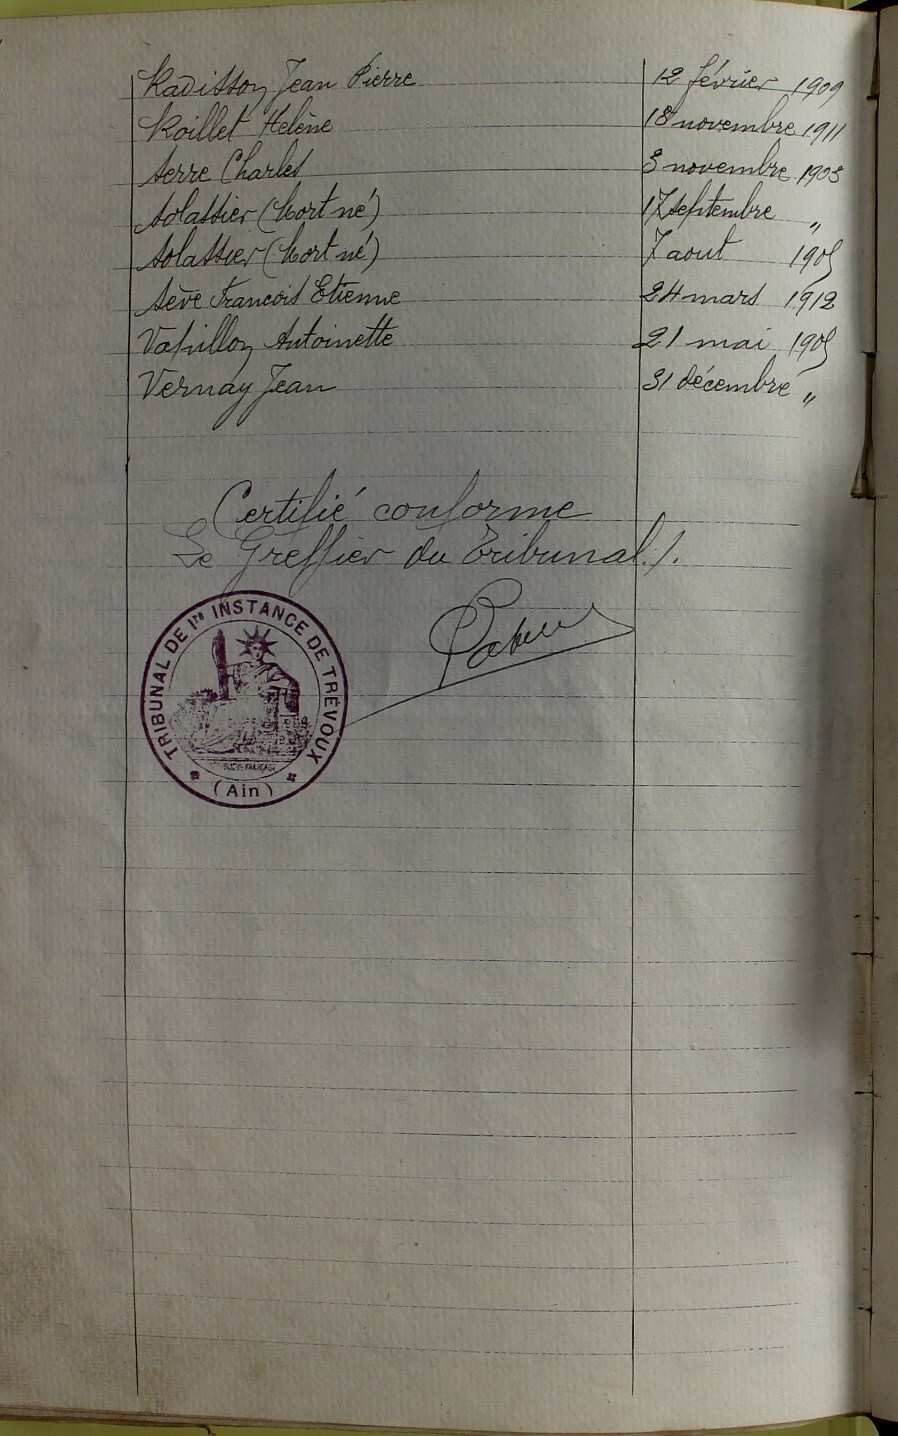 Radisson Jean Pierre 12 février 1909
Roillet Helène 18 novembre 1911
Serre Charles 3 novembre 1903
Solassier (Mort né) 17 septembre "
Solassier (Mort né) 7 aout 1905
Sève Francois Etienne 24 mars 1912
Vapillon Antoinette 21 mai 1905
Vernay Jean 31 décembre "
Certifié conforme
Le Greffier du Tribunal ./.
TRIBUNAL DE 1re INSTANCE DE TRÉVOUX
(Ain)